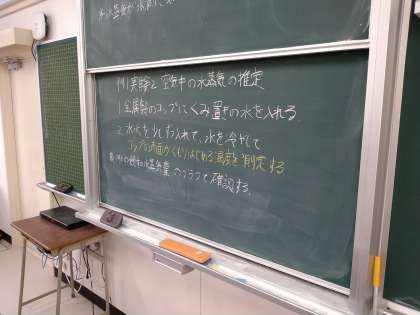 水蒸気が水滴に
P191 実験2 空気中の水蒸気の推定
1 金属製のコップにくみ置きの水を入れる
2 氷水を少しずつ入れて、水を冷やして
コップの表面がくもりはじめる温度を測定する
水蒸気量 のグラフで確認する。